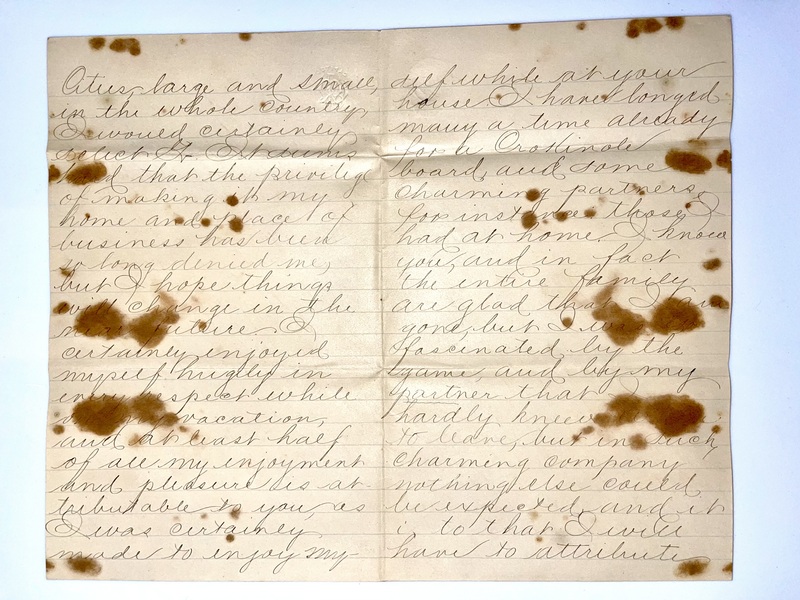 Cities large and small,
in the whole country,
I would certainly
select St. It seems
that the privilege
of making it my
home and place of
business has been
so long denied me,
but I hope things
will change in the
near future. I
certainly enjoyed
myself hugely in
every respect while
vacation,
and at least half
of all my enjoyment
and pleasure is at-
tributable to you, as
I was certainly
made to enjoy my-
self while at your
house. I have longed
many a time already
for a Crokinole
board, and some
charming partners,
for instance those I
had at home. I know
you, and in fact
the entire family
are glad that I am
gone, but I was
fascinated by the
game, and by my
partner that I
hardly knew
to leave, but in such
charming company
nothing else could
be expected, and it
is to that I will
have to attribute